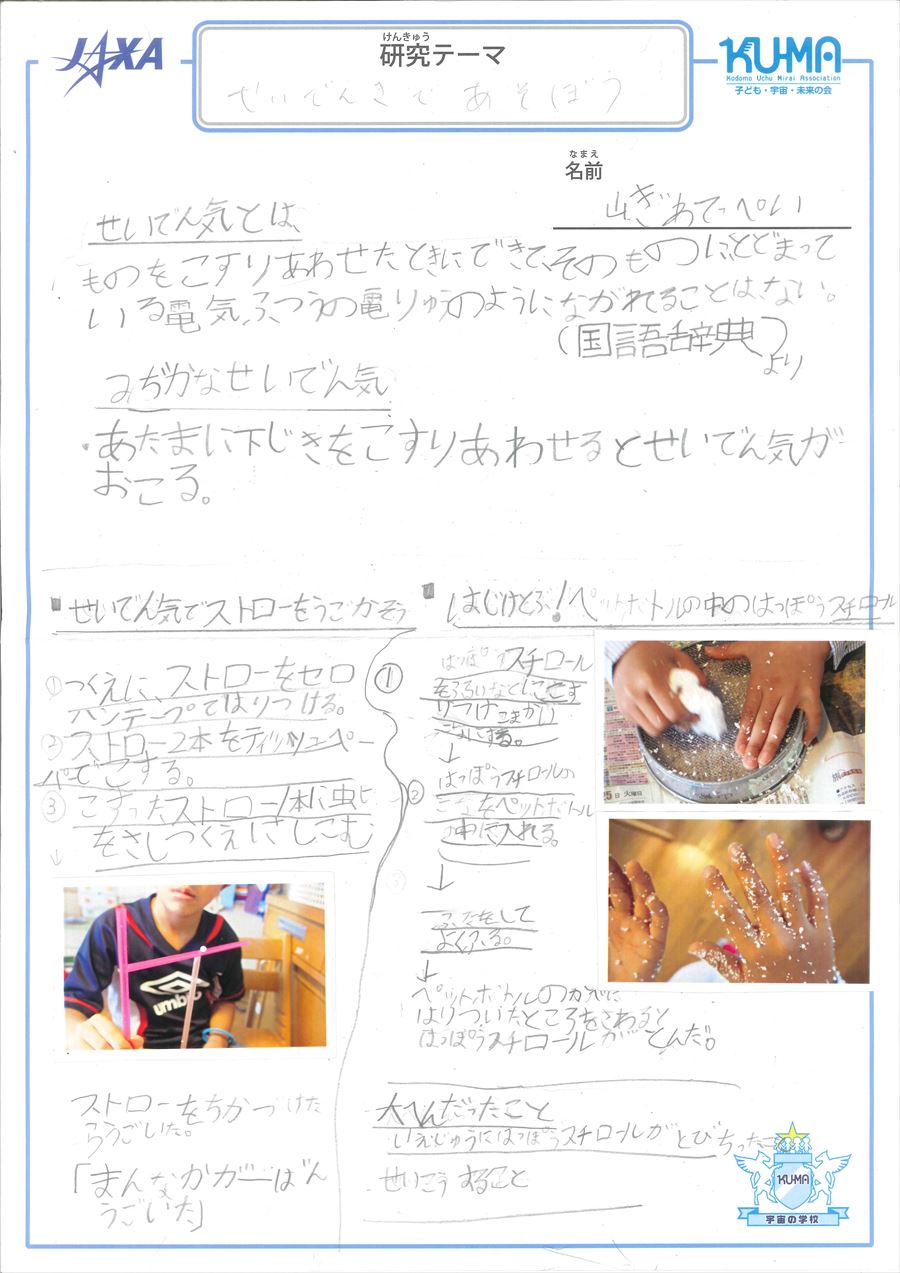 JAXA
けんきゅう
研究テーマ
せいでんきであそぼう
KU-MA
Kodomo Uchu Mirai Association
子ども・宇宙・未来の会
なまえ
名前
山ぎわてっぺい
せいでん気とは、
ものをこすりあわせたときにできて、そのものに、とどまって
いる電気、ふつうの電りゅうのようにながれることはない。
(国語辞典)
より
みぢかなせいでん気
・あたまに下じきをこすりあわせるとせいでん気が
おこる。
せいでん気でストローをうごかそう
①つくえに、ストローをセロ
ハンテープではりつける。
②ストロー2本をティッシュペー
パでこする。
③こすったストロー1本に虫ピ
をさしつくえにさしこむ
ストローをちかづけた
らうごいた。
「まんなかがーばん
うごいた」
はじけとぶ!ペットボトルの中のはっぽうスチロール
①
はっぽうスチロール
をふるいなどにこす
りつけこまかに
こなにする。
↓
②
はっぽうスチロールの
こなをペットボトル
の中に入れる。
③
↓
ふたをして
よくふる。
↓
ペットボトルのかべに
はりついたところをさわると
はっぽうスチロールがとんだ。
大へんだったこと
いえじゅうにはっぽうスチロールがとびちったこと
せいこうすること
5日 火曜日
umbro
KU-MA
宇宙の学校